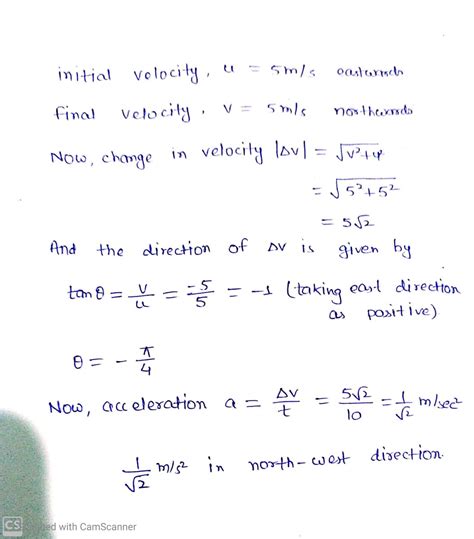 initial velocity, u = 5m/s eastwards
final velocity, v = 5m/s northwards
Now, change in velocity |Δv| = √v²+u²
= √5²+5²
= 5√2
And the direction of Δv is given by
tanθ = v/u = -5/5 = -1 (taking east direction
as positive)
θ = - π/4
Now, acceleration a = Δv/t = 5√2/10 = 1/√2 m/sec²
1/√2 m/s² in north-west direction.
CS with CamScanner